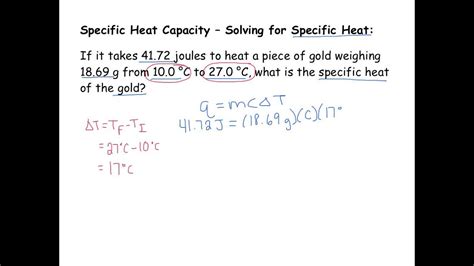 Specific Heat Capacity – Solving for Specific Heat:
If it takes 41.72 joules to heat a piece of gold weighing
18.69 g from 10.0 °C to 27.0 °C, what is the specific heat
of the gold?
q = mCΔT
ΔT = TF - TI
41.72 J = (18.69 g)(C)(17°
= 27°C - 10°C
= 17°C